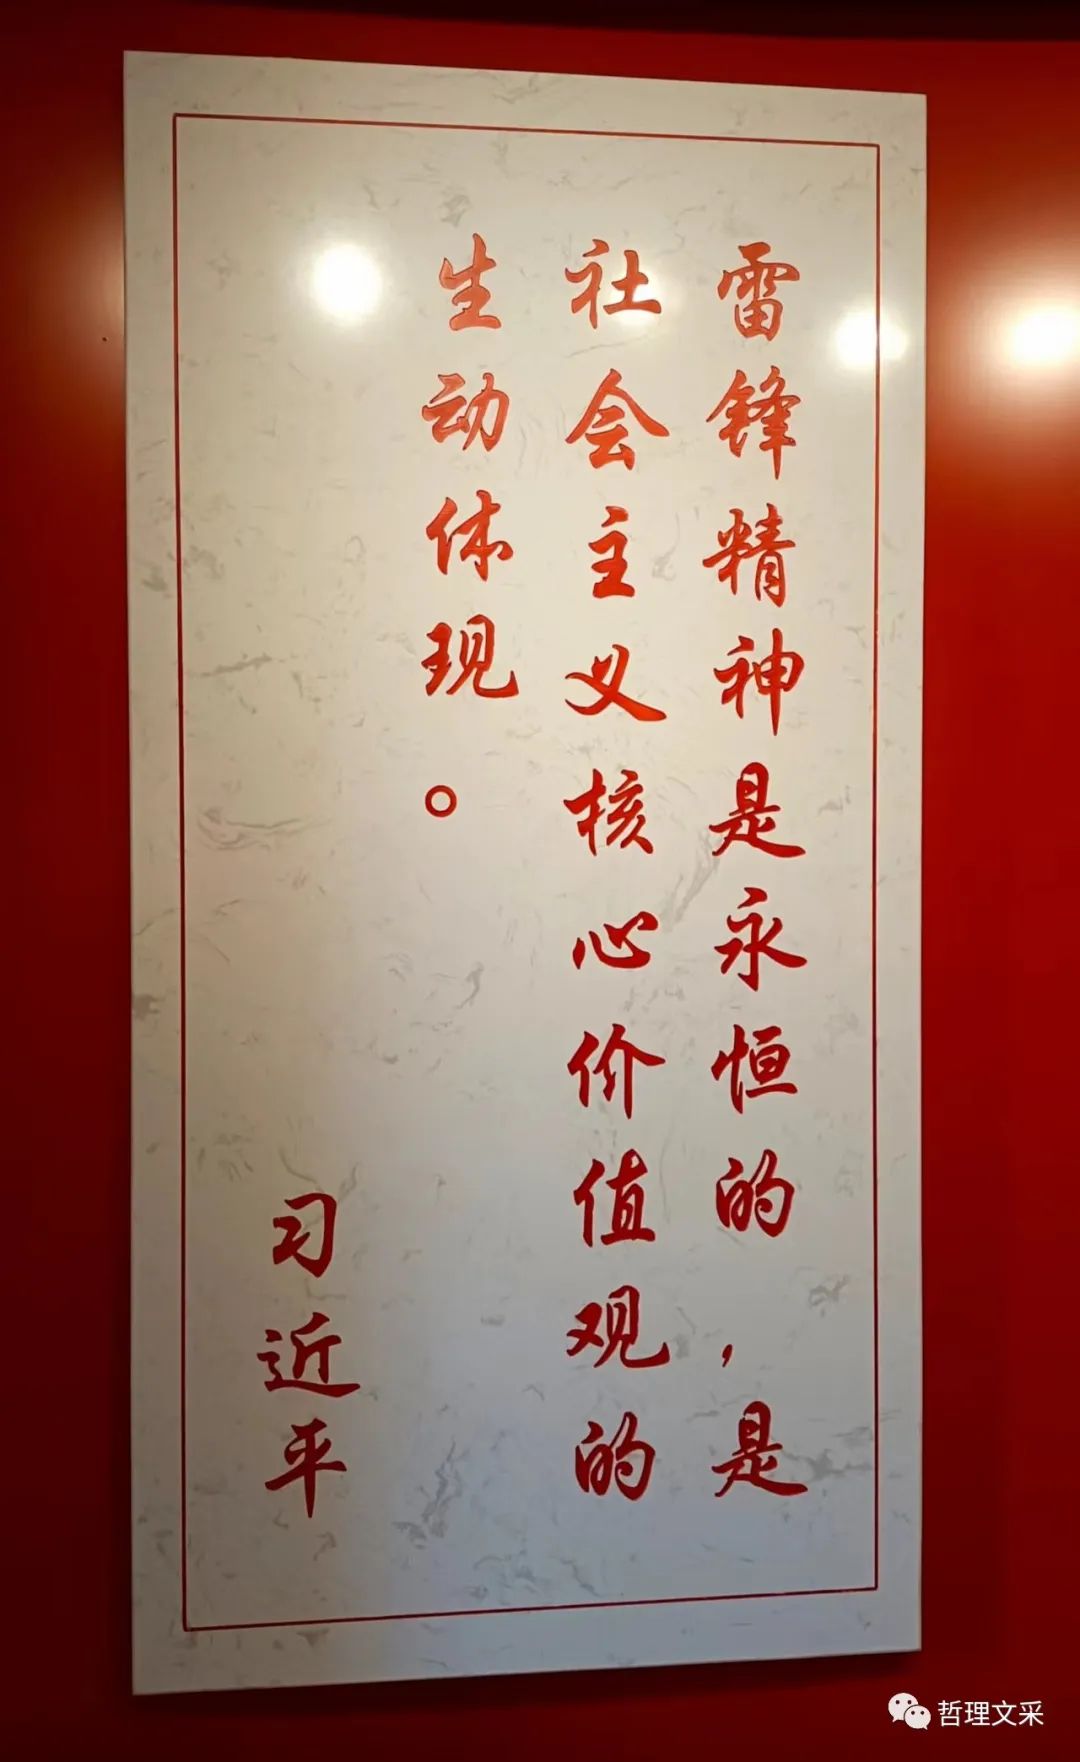 雷锋精神是永恒的，是
社会主义核心价值观的
生动体现。
习近平
哲理文采